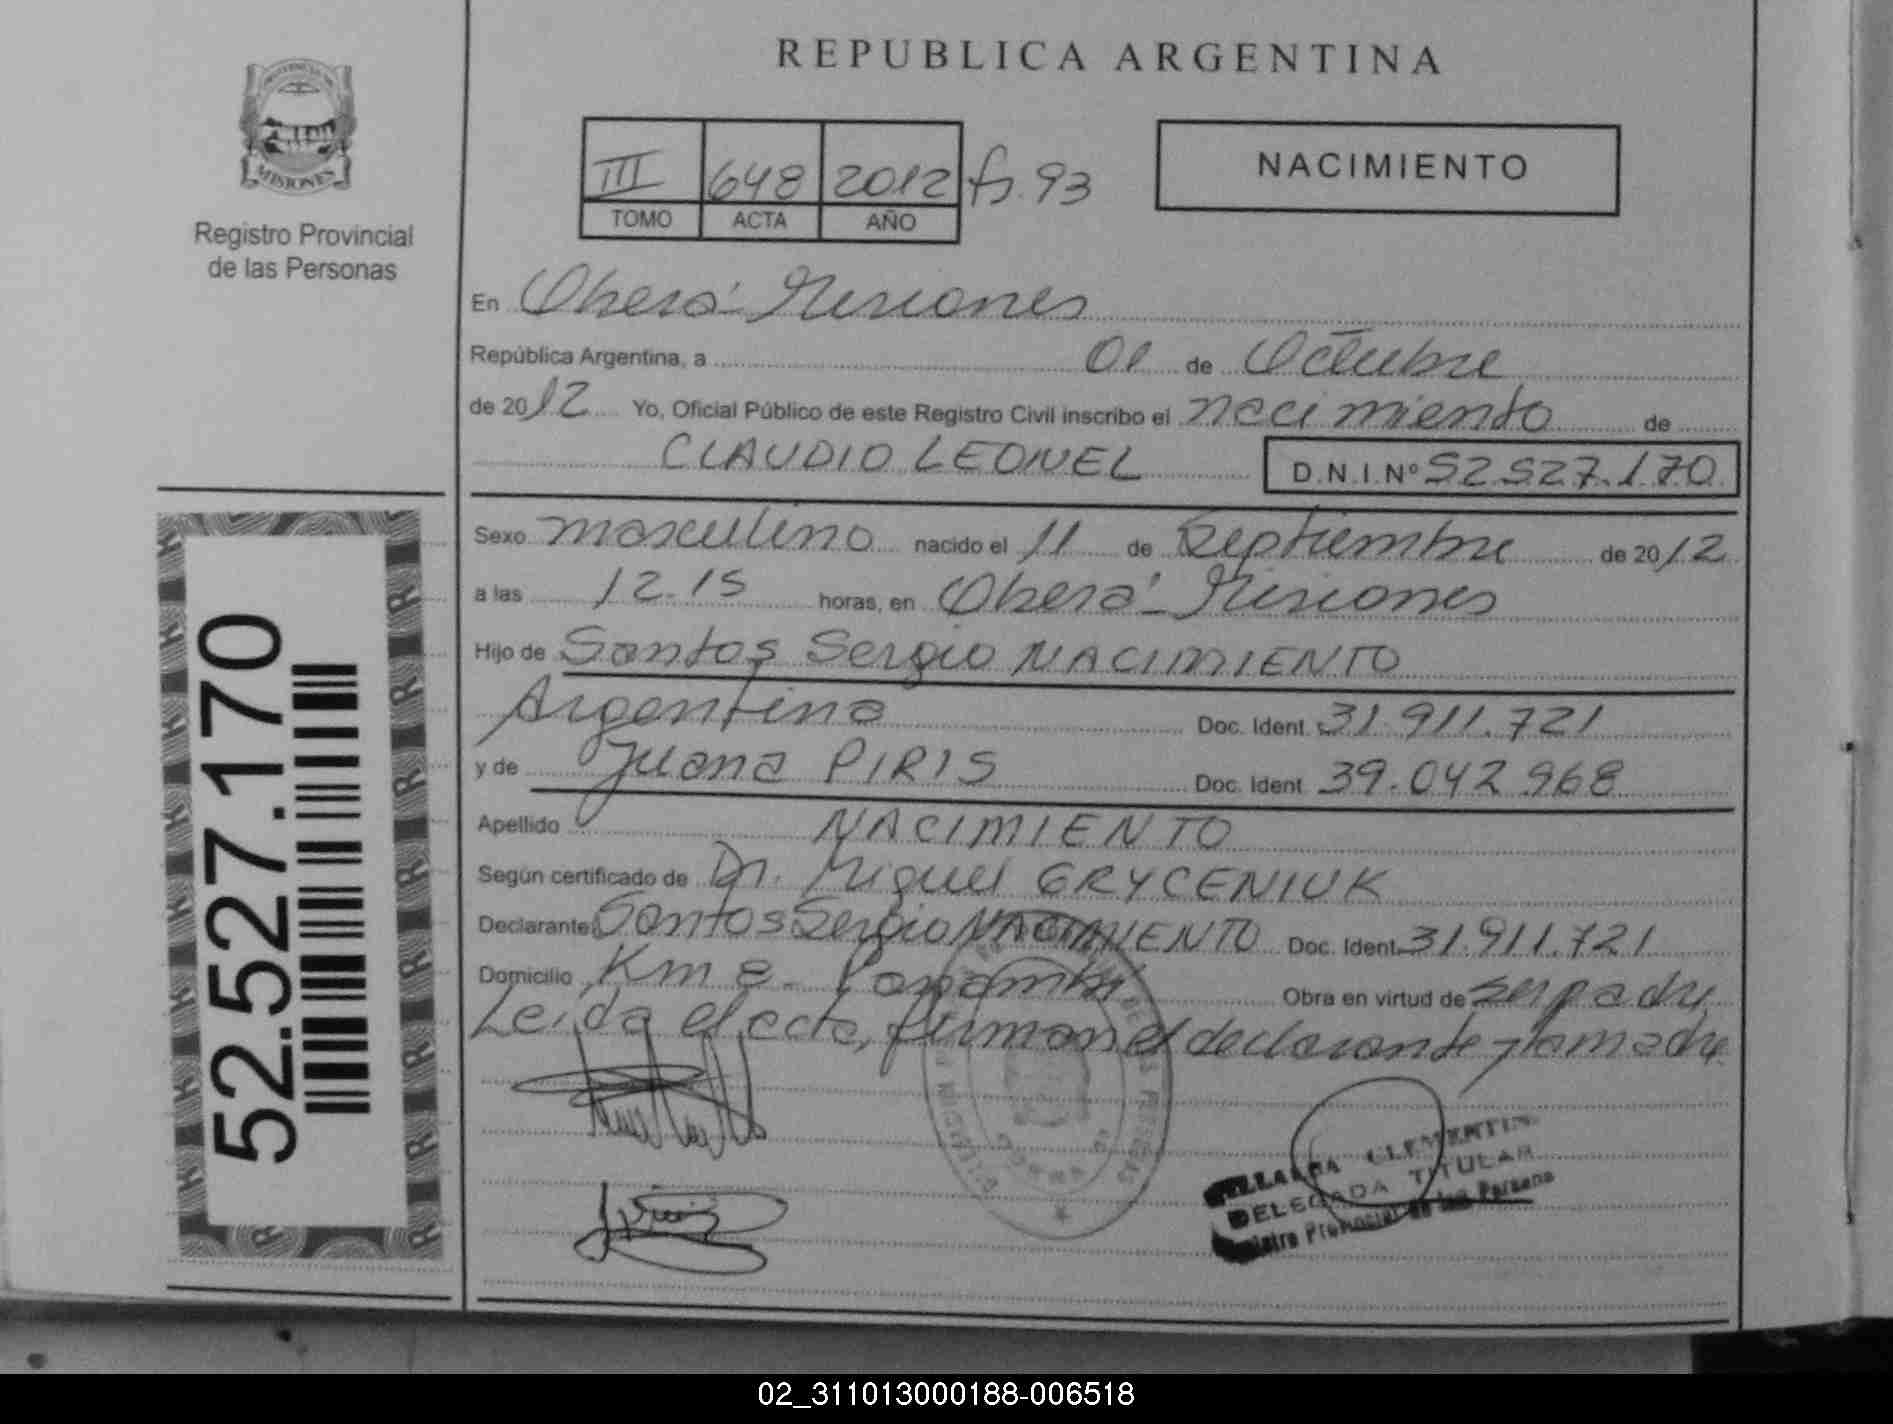 REPUBLICA ARGENTINA
PROVINCIA DE
MISIONES
Registro Provincial
de las Personas
III 648 2012 fs. 93
TOMO ACTA AÑO
NACIMIENTO
En Oberá - Misiones
República Argentina, a 01 de Octubre
de 2012 Yo, Oficial Público de este Registro Civil inscribo el nacimiento de
CLAUDIO LEONEL D.N.I.Nº 52.527.170
Sexo masculino nacido el 11 de Septiembre de 2012
a las 12.15 horas, en Oberá - Misiones
Hijo de Santos Sergio NACIMIENTO
Argentina Doc. Ident. 31.911.721
y de Juana PIRIS Doc. Ident. 39.042.968
Apellido NACIMIENTO
Según certificado de Dr. Miguel GRYCENIUK
Declarante Santos Sergio NACIMIENTO Doc. Ident. 31.911.721
Domicilio Km 8 - Panambi Obra en virtud de ser padre
Leida el acta, firman el declarante y la madre
52.527.170
CLEMENTIN
DELEGADA TITULAR
Provincial de las Persona
02_311013000188-006518